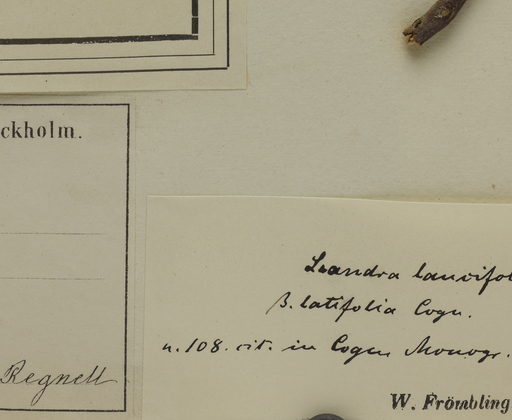 ckholm.
Regnell
Leandra lancifol
β. latifolia Cogn.
n. 108. cit. in Cogn Monogr.
W. Frömbling